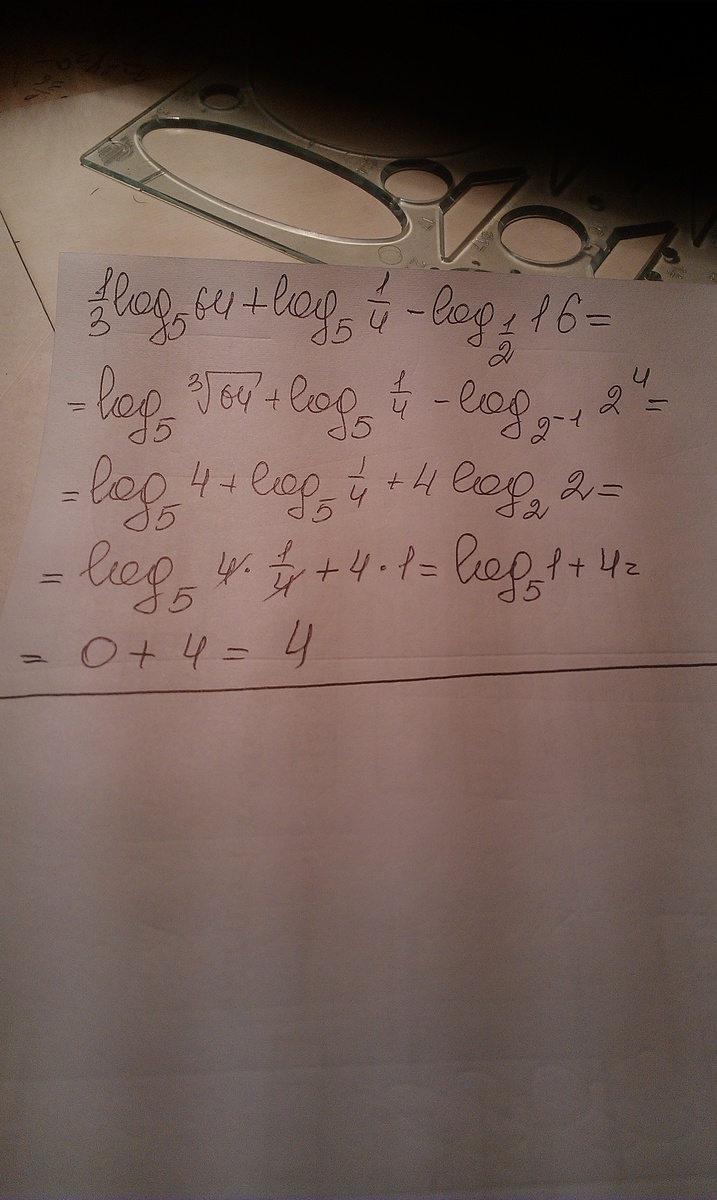 1/3 log₅ 64 + log₅ 1/4 - log_{1/2} 16 =
= log₅ ∛64 + log₅ 1/4 - log_{2⁻¹} 2⁴ =
= log₅ 4 + log₅ 1/4 + 4 log₂ 2 =
= log₅ 4 · 1/4 + 4 · 1 = log₅ 1 + 4 =
= 0 + 4 = 4